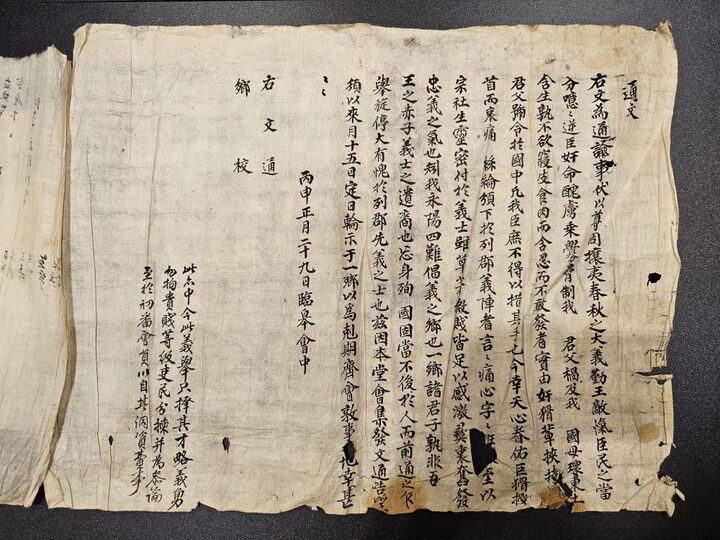 通文
右文爲通諭事伏以尊周攘夷春秋之大義勤王敵愾臣民之當
分噫〻逆臣奸命醜虜乘釁脅制我 君父禍及我 國母環東土
含生孰不欲寢皮食肉而含忍而不敢發者實由奸猾輩挾持
君父號令於國中凡我臣庶不得以措其手 今幸天心眷佑臣猾授
首而哀痛 絲綸頒下於列郡義陣者言〻痛心字〻 至以
宗社生靈密付於義士雖草 微賤皆足以感激 奮發
忠義之氣也矧我永陽四難倡義之鄉也一鄉諸君子孰非吾
王之赤子義士之遺裔也忘身殉 國固當不後於人而甫通之下
擧旋停大有愧於列郡先義之士也玆因本堂會集發文通告
須以來月十五日定日輪示于一鄉以爲剋期齊會敦事 幸甚
〻〻
丙申正月二十九日臨皐會中
右文通
鄉校
此亦中今此義擧只擇其才略義勇
勿拘貴賤等級吏民分揀幷爲參論
至於初番會員 自其洞資